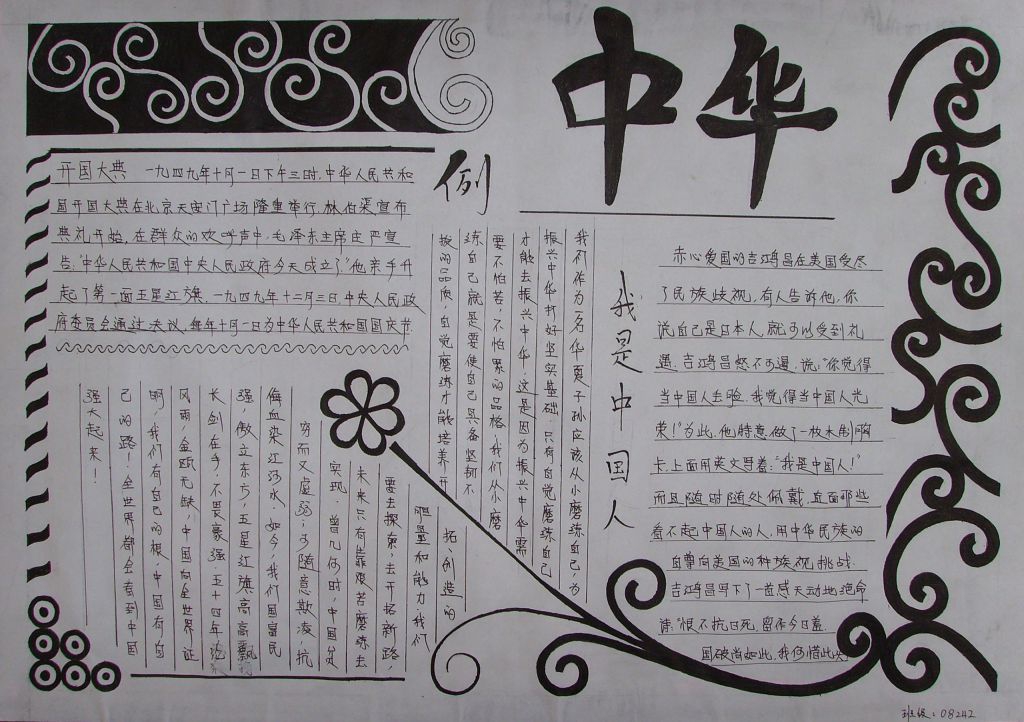 中华
例
开国大典 一九四九年十月一日下午三时,中华人民共和
国开国大典在北京天安门广场隆重举行.林伯渠宣布
典礼开始,在群众的欢呼声中,毛泽东主席庄严宣
告:"中华人民共和国中央人民政府今天成立了"他亲手升
起了第一面五星红旗.一九四九年十二月三日,中央人民政
府委员会通过决议,每年十月一日为中华人民共和国国庆节
我是中国人
赤心爱国的吉鸿昌在美国受尽
了民族歧视,有人告诉他,你
说自己是日本人,就可以受到礼
遇.吉鸿昌怒不可遏,说:"你觉得
当中国人丢脸,我觉得当中国人光
荣!"为此,他特意做了一枚木制胸
卡,上面用英文写着:"我是中国人!"
而且随时随处佩戴,直面那些
看不起中国人的人,用中华民族的
自尊向美国的种族视挑战.
吉鸿昌写下了一首感天动地绝命
诗:"恨不抗日死,留作今日羞.
国破尚如此,我何惜此头
我们作为一名华夏子孙应该从小磨练自己,为
振兴中华打好坚实基础.只有自觉磨练自己
才能去振兴中华,这是因为振兴中华需
要不怕苦,不怕累的品格,我们从小磨
练自己就是要使自己具备坚韧不
拔的品质,自觉磨练才能培养开
拓、创造的
胆量和能力,我们
要去探索,去开拓新路,
未来只有靠艰苦磨练去
实现 曾几何时,中国贫
穷而又虚弱,可随意欺凌,抗
侮血染江河水.如今,我们国富民
强,傲立东方,五星红旗高高飘
长剑在手,不畏豪强,五十年沧
风雨,金瓯无缺,中国向全世界证
明,我们有自己的根,中国有自
己的路!全世界都会看到中国
强大起来!
班级:08242